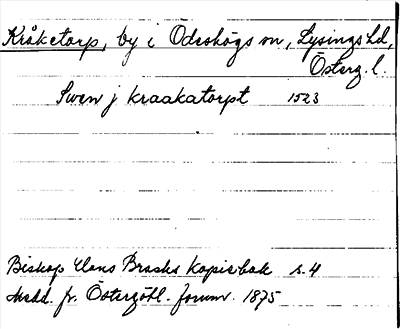 Kråketorp, by i Ödeshögs sn, Lysings hd,
Österg. l.
Swen j kraakatorpt 1523
Biskop Hans Brasks kopiebok s. 4
Medd. fr. Östergötl. fornm. 1875